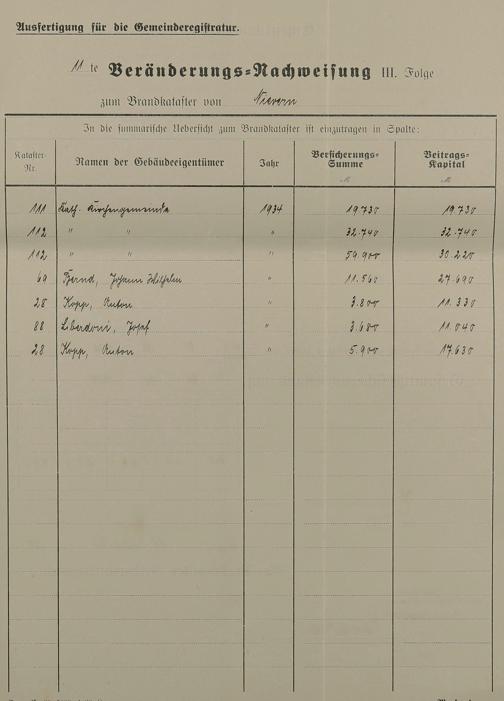 Ausfertigung für die Gemeinderegistratur.
11 te Veränderungs-Nachweisung III. Folge
zum Brandkataster von Nievern
In die summarische Uebersicht zum Brandkataster ist einzutragen in Spalte:
Kataster-Nr. Namen der Gebäudeeigentümer Jahr Versicherungs-Summe Beitrags-Kapital
M M
111 Kath. Kirchengemeinde 1934 19.730 19.730
112 " " " 32.740 32.740
112 " " " 59.900 30.220
69 Bernd, Johann Wilhelm " 11.560 27.690
28 Kopp, Anton " 3.800 11.330
88 Liberdoni, Josef " 3.680 11.040
28 Kopp, Anton " 5.900 17.630